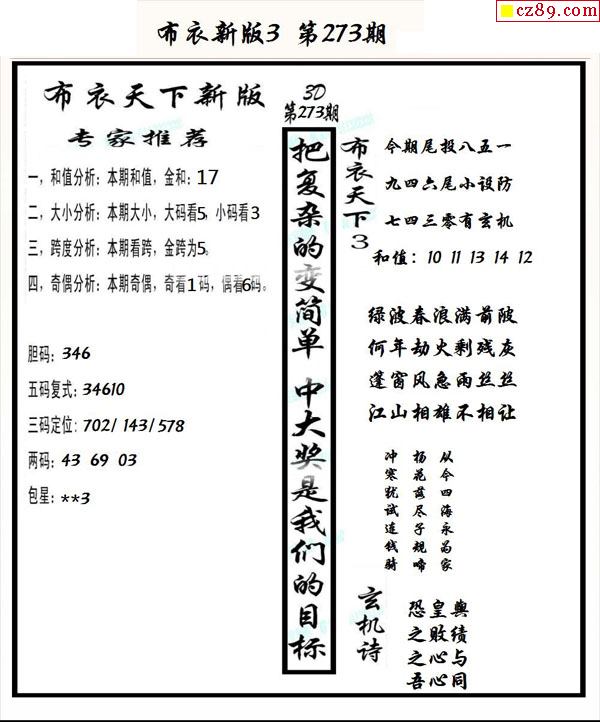 cz89.com
布衣新版3 第273期
布衣天下新版
专家推荐
一，和值分析：本期和值，金和：17
二，大小分析：本期大小，大码看5，小码看3
三，跨度分析：本期看跨，金跨为5。
四，奇偶分析：本期奇偶，奇看1码，偶看6码。
胆码：346
五码复式：34610
三码定位：702/ 143/578
两码：43 69 03
包星：**3
3D
第273期
把复杂的变简单 中大奖是我们的目标
布衣天下3
今期尾投八五一
九四六尾小设防
七四三零有玄机
和值：10 11 13 14 12
绿波春浪满前陂
何年劫火剩残灰
蓬窗风急雨丝丝
江山相雄不相让
从今四海永为家
杨花落尽子规啼
冲寒犹试连钱骑
玄机诗
恐皇舆
之败绩
之心与
吾心同